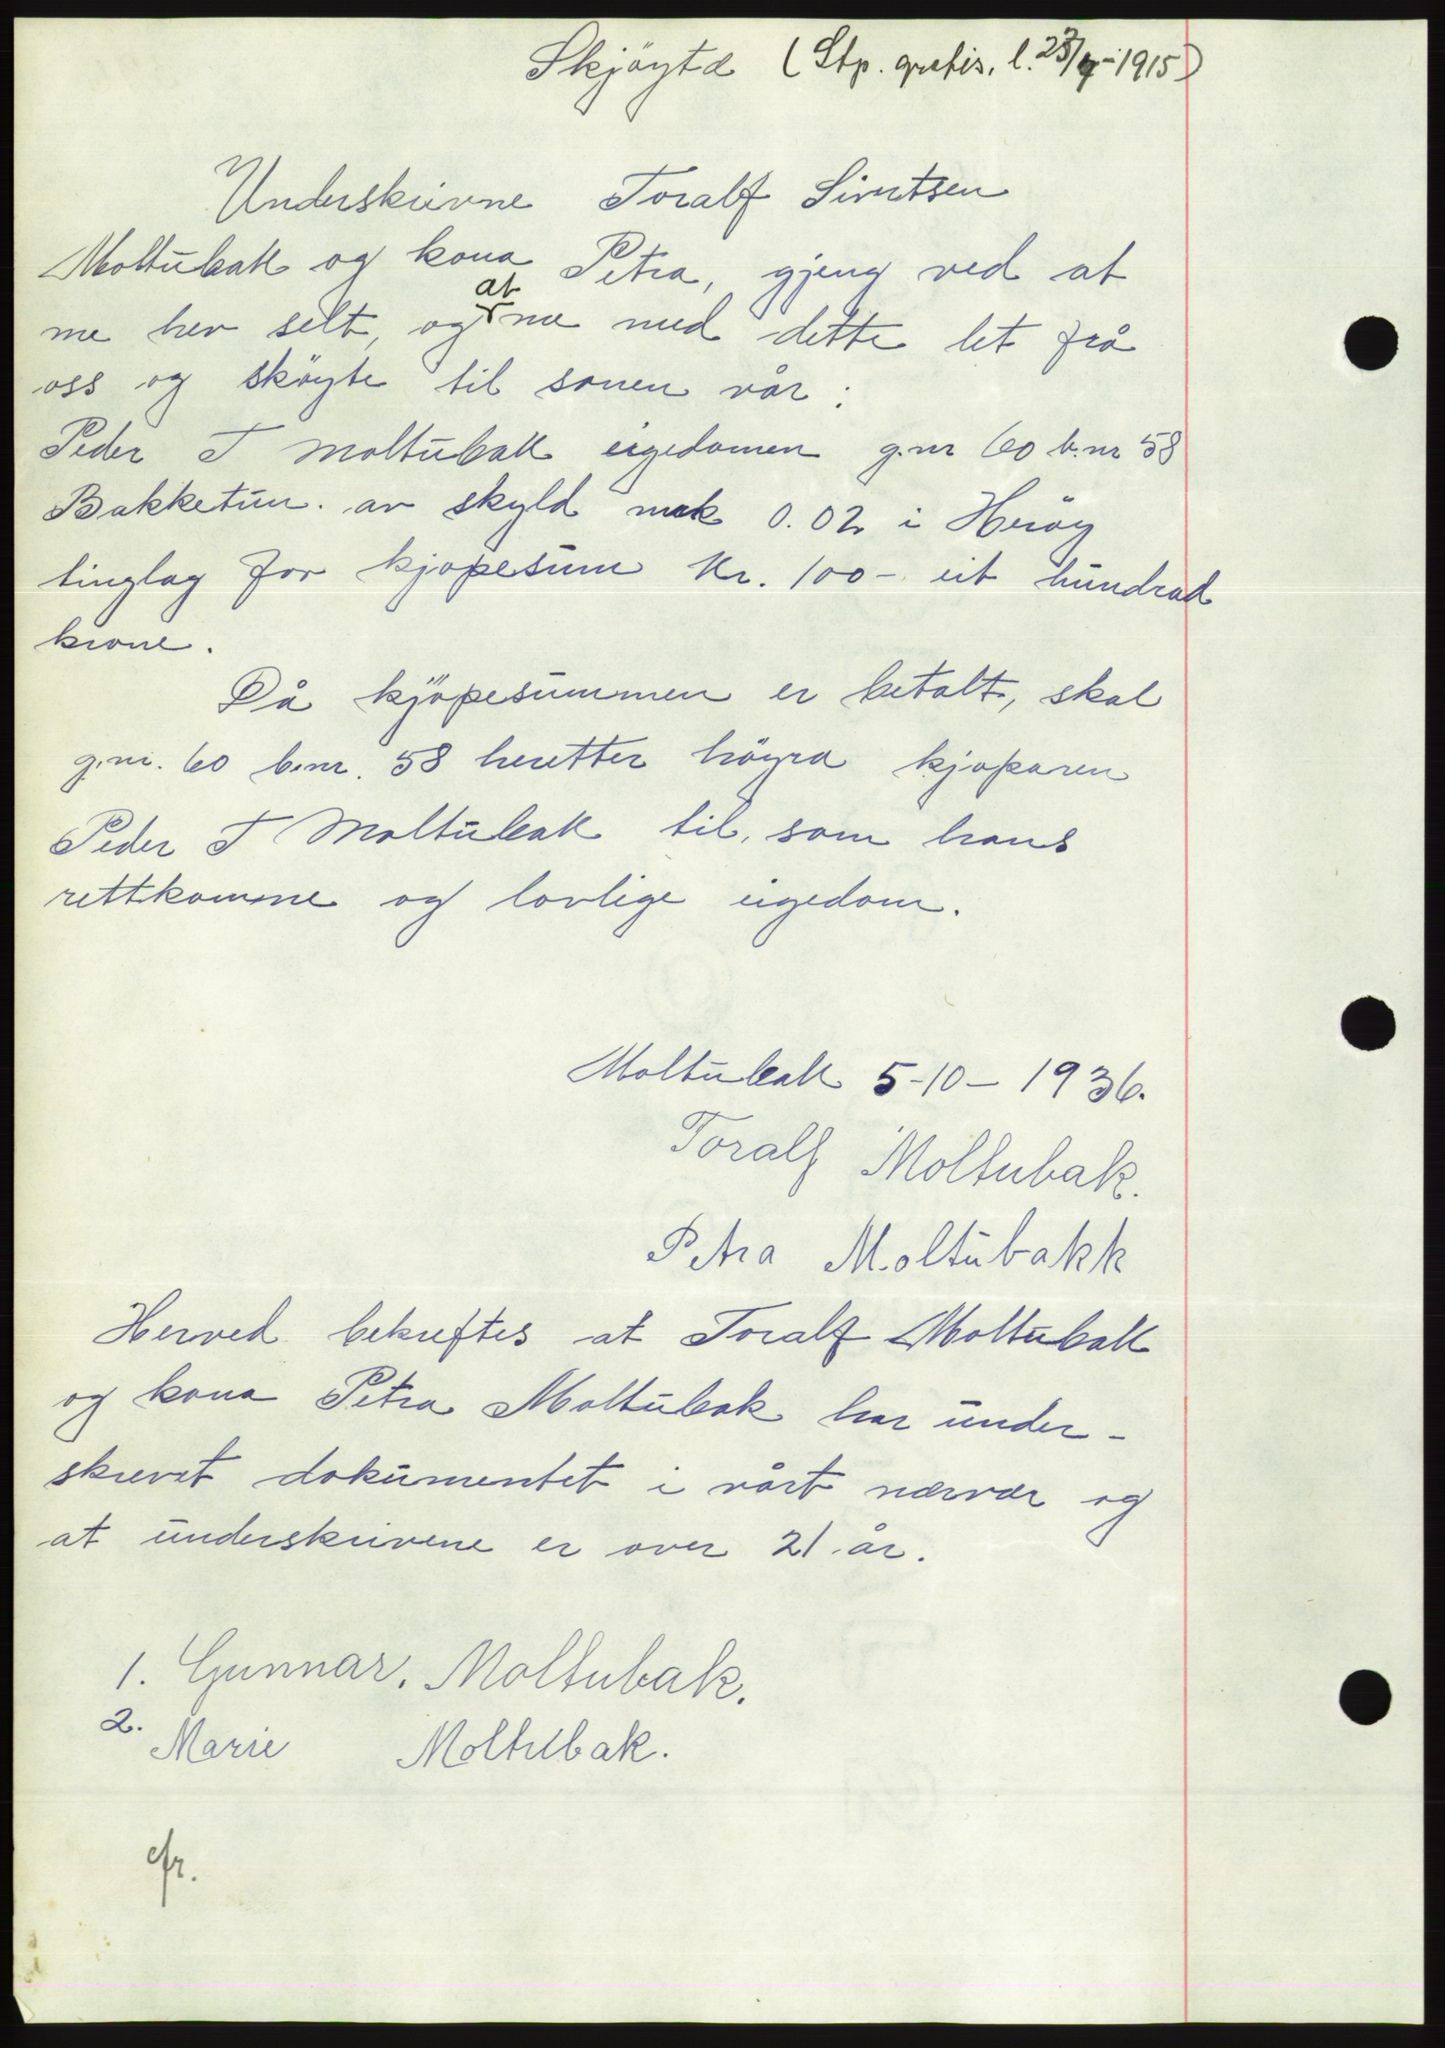 Skjöyte (Stp. gratis, l. 23/7-1915)
Underskrivne Toralf Sivertsen
Moltubakk og kona Petra, gjeng ved at
at
me hev selt, og me med dette let frå
oss og sköyte til sonen vår:
Peder T Moltubakk eigedomen g.nr 60 b.nr 58
Bakketun. av skyld mrk 0.02 i Heröy
tinglag for kjöpesum Kr. 100- eit hundrad
krone.
Då kjöpesummen er betalt, skal
g.nr. 60 b.nr. 58 heretter högra kjöparen
Peder T Moltubakk til, som hans
rettkomne og lovlige eigedom.
Moltubakk 5-10-1936.
Toralf Moltubak.
Petra Moltubakk
Herved bekreftes at Toralf Moltubakk
og kona Petra Moltubak har under-
skrevet dokumentet i vårt nærvær og
at underskrivene er over 21 år.
1. Gunnar. Moltubak.
2. Marie Moltubak.
cfr.